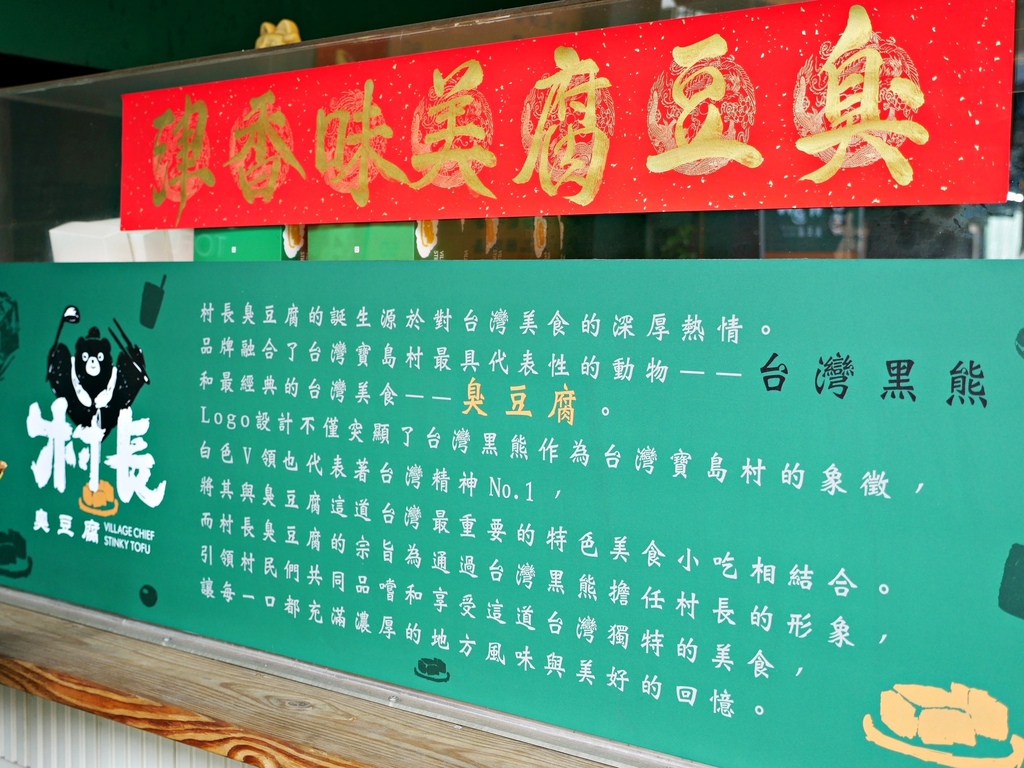 臭豆腐美味香
村長臭豆腐的誕生源於對台灣美食的深厚熱情。
品牌融合了台灣寶島村最具代表性的動物——台灣黑熊
和最經典的台灣美食——臭豆腐。
Logo設計不僅突顯了台灣黑熊作為台灣寶島村的象徵，
白色V領也代表著台灣精神No.1，
將其與臭豆腐這道台灣最重要的特色美食小吃相結合。
而村長臭豆腐的宗旨為通過台灣黑熊擔任村長的形象，
引領村民們共同品嚐和享受這道台灣獨特的美食，
讓每一口都充滿濃厚的地方風味與美好的回憶。
村長
臭豆腐
VILLAGE CHIEF
STINKY TOFU